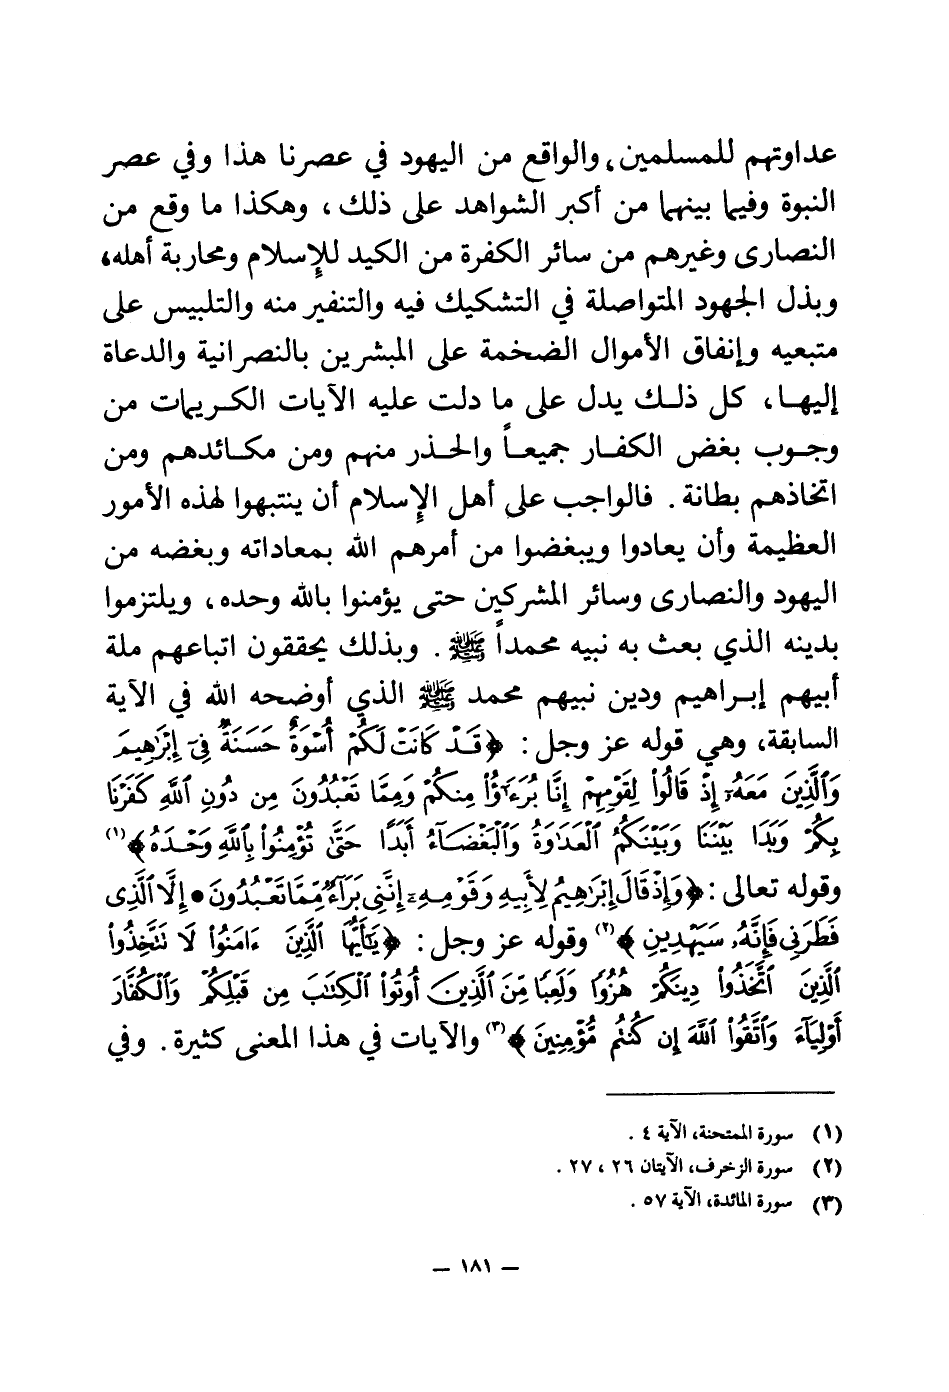 عداوتهم للمسلمين، والواقع من اليهود في عصرنا هذا وفي عصر
النبوة وفيما بينهما من أكبر الشواهد على ذلك، وهكذا ما وقع من
النصارى وغيرهم من سائر الكفرة من الكيد للإسلام ومحاربة أهله،
وبذل الجهود المتواصلة في التشكيك فيه والتنفير منه والتلبيس على
متبعيه وإنفاق الأموال الضخمة على المبشرين بالنصرانية والدعاة
إليها، كل ذلك يدل على ما دلت عليه الآيات الكريمات من
وجوب بغض الكفار جميعاً والحذر منهم ومن مكائدهم ومن
اتخاذهم بطانة. فالواجب على أهل الإسلام أن ينتبهوا لهذه الأمور
العظيمة وأن يعادوا ويبغضوا من أمرهم الله بمعاداته وبغضه من
اليهود والنصارى وسائر المشركين حتى يؤمنوا بالله وحده، ويلتزموا
بدينه الذي بعث به نبيه محمداً ﷺ. وبذلك يحققون اتباعهم ملة
أبيهم إبراهيم ودين نبيهم محمد ﷺ الذي أوضحه الله في الآية
السابقة، وهي قوله عز وجل: ﴿قَدْ كَانَتْ لَكُمْ أُسْوَةٌ حَسَنَةٌ فِىٓ إِبْرَٰهِيمَ
وَٱلَّذِينَ مَعَهُۥٓ إِذْ قَالُوا۟ لِقَوْمِهِمْ إِنَّا بُرَءَٰٓؤُا۟ مِنكُمْ وَمِمَّا تَعْبُدُونَ مِن دُونِ ٱللَّهِ كَفَرْنَا
بِكُمْ وَبَدَا بَيْنَنَا وَبَيْنَكُمُ ٱلْعَدَٰوَةُ وَٱلْبَغْضَآءُ أَبَدًا حَتَّىٰ تُؤْمِنُوا۟ بِٱللَّهِ وَحْدَهُ﴾(١)
وقوله تعالى: ﴿وَإِذْ قَالَ إِبْرَٰهِيمُ لِأَبِيهِ وَقَوْمِهِۦٓ إِنَّنِى بَرَآءٌ مِّمَّا تَعْبُدُونَ • إِلَّا ٱلَّذِى
فَطَرَنِى فَإِنَّهُۥ سَيَهْدِينِ﴾(٢) وقوله عز وجل: ﴿يَٰٓأَيُّهَا ٱلَّذِينَ ءَامَنُوا۟ لَا تَتَّخِذُوا۟
ٱلَّذِينَ ٱتَّخَذُوا۟ دِينَكُمْ هُزُوًا وَلَعِبًا مِّنَ ٱلَّذِينَ أُوتُوا۟ ٱلْكِتَٰبَ مِن قَبْلِكُمْ وَٱلْكُفَّارَ
أَوْلِيَآءَ وَٱتَّقُوا۟ ٱللَّهَ إِن كُنتُم مُّؤْمِنِينَ﴾(٣) والآيات في هذا المعنى كثيرة. وفي
(١) سورة الممتحنة، الآية ٤.
(٢) سورة الزخرف، الآيتان ٢٦، ٢٧.
(٣) سورة المائدة، الآية ٥٧.
— ١٨١ —